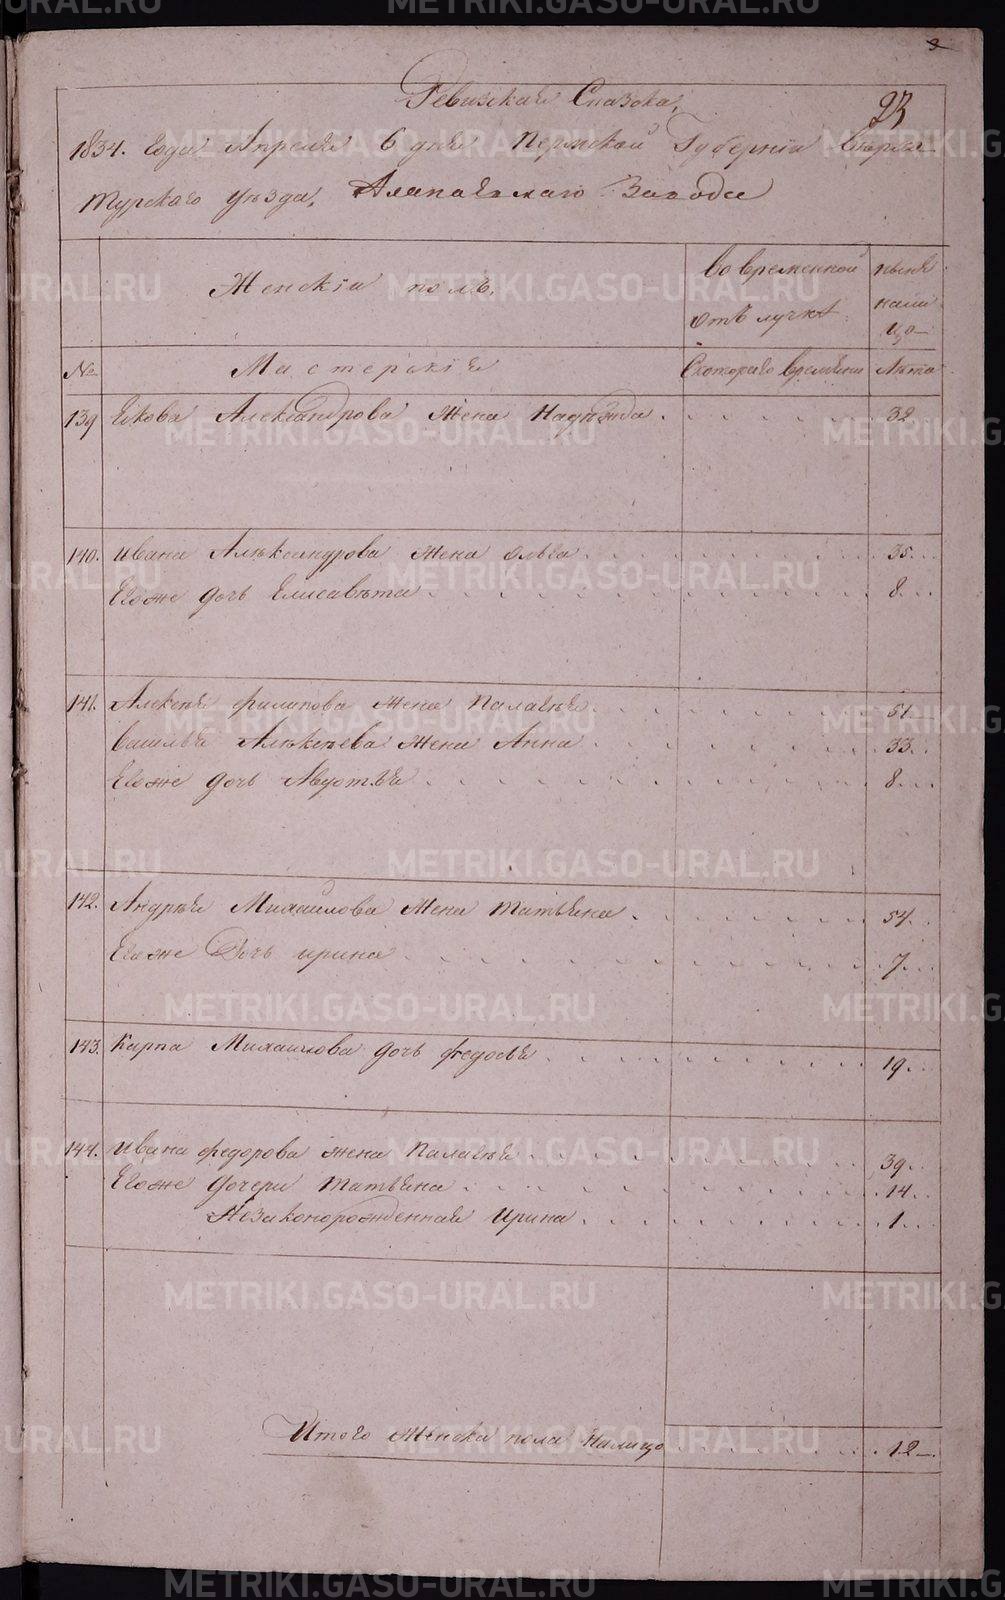 Ревизская Сказка,
23
1834. года Апреля 6 дня Пермской Губернии Верхо
турскаго уѣзда, Алапаевскаго Завода
Женскiй полъ,
Во временной
отълучкѣ
ныне
нали
цо
№
Мастерскiя
Скотораго времяни
Лѣта
139 Якова Александрова жена Надѣжда 32
140. Ивана Алѣксандрова жена Ольга 35
Егоже дочь Елисавѣта 8
141. Алексѣя филипова жена Палагѣя 51
Василья Алѣксѣева жена Анна 33
Егоже дочь Авдотья 8
142. Андрѣя Михаилова жена Татьяна 54
Егоже Дочь ирина 7
143. Карпа Михаилова дочь федосья 19
144. Ивана федорова жена Палагѣя 39
Егоже дочери Татьяна 14
Незаконорожденная Ирина 1
Итого женска пола налицо 12
METRIKI.GASO-URAL.RU